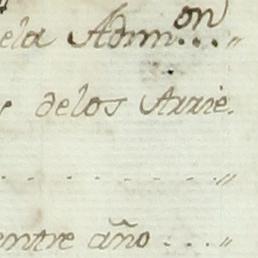 ela Admi.on..."
delos Arrie.
. . . . . . . "
entre año...."